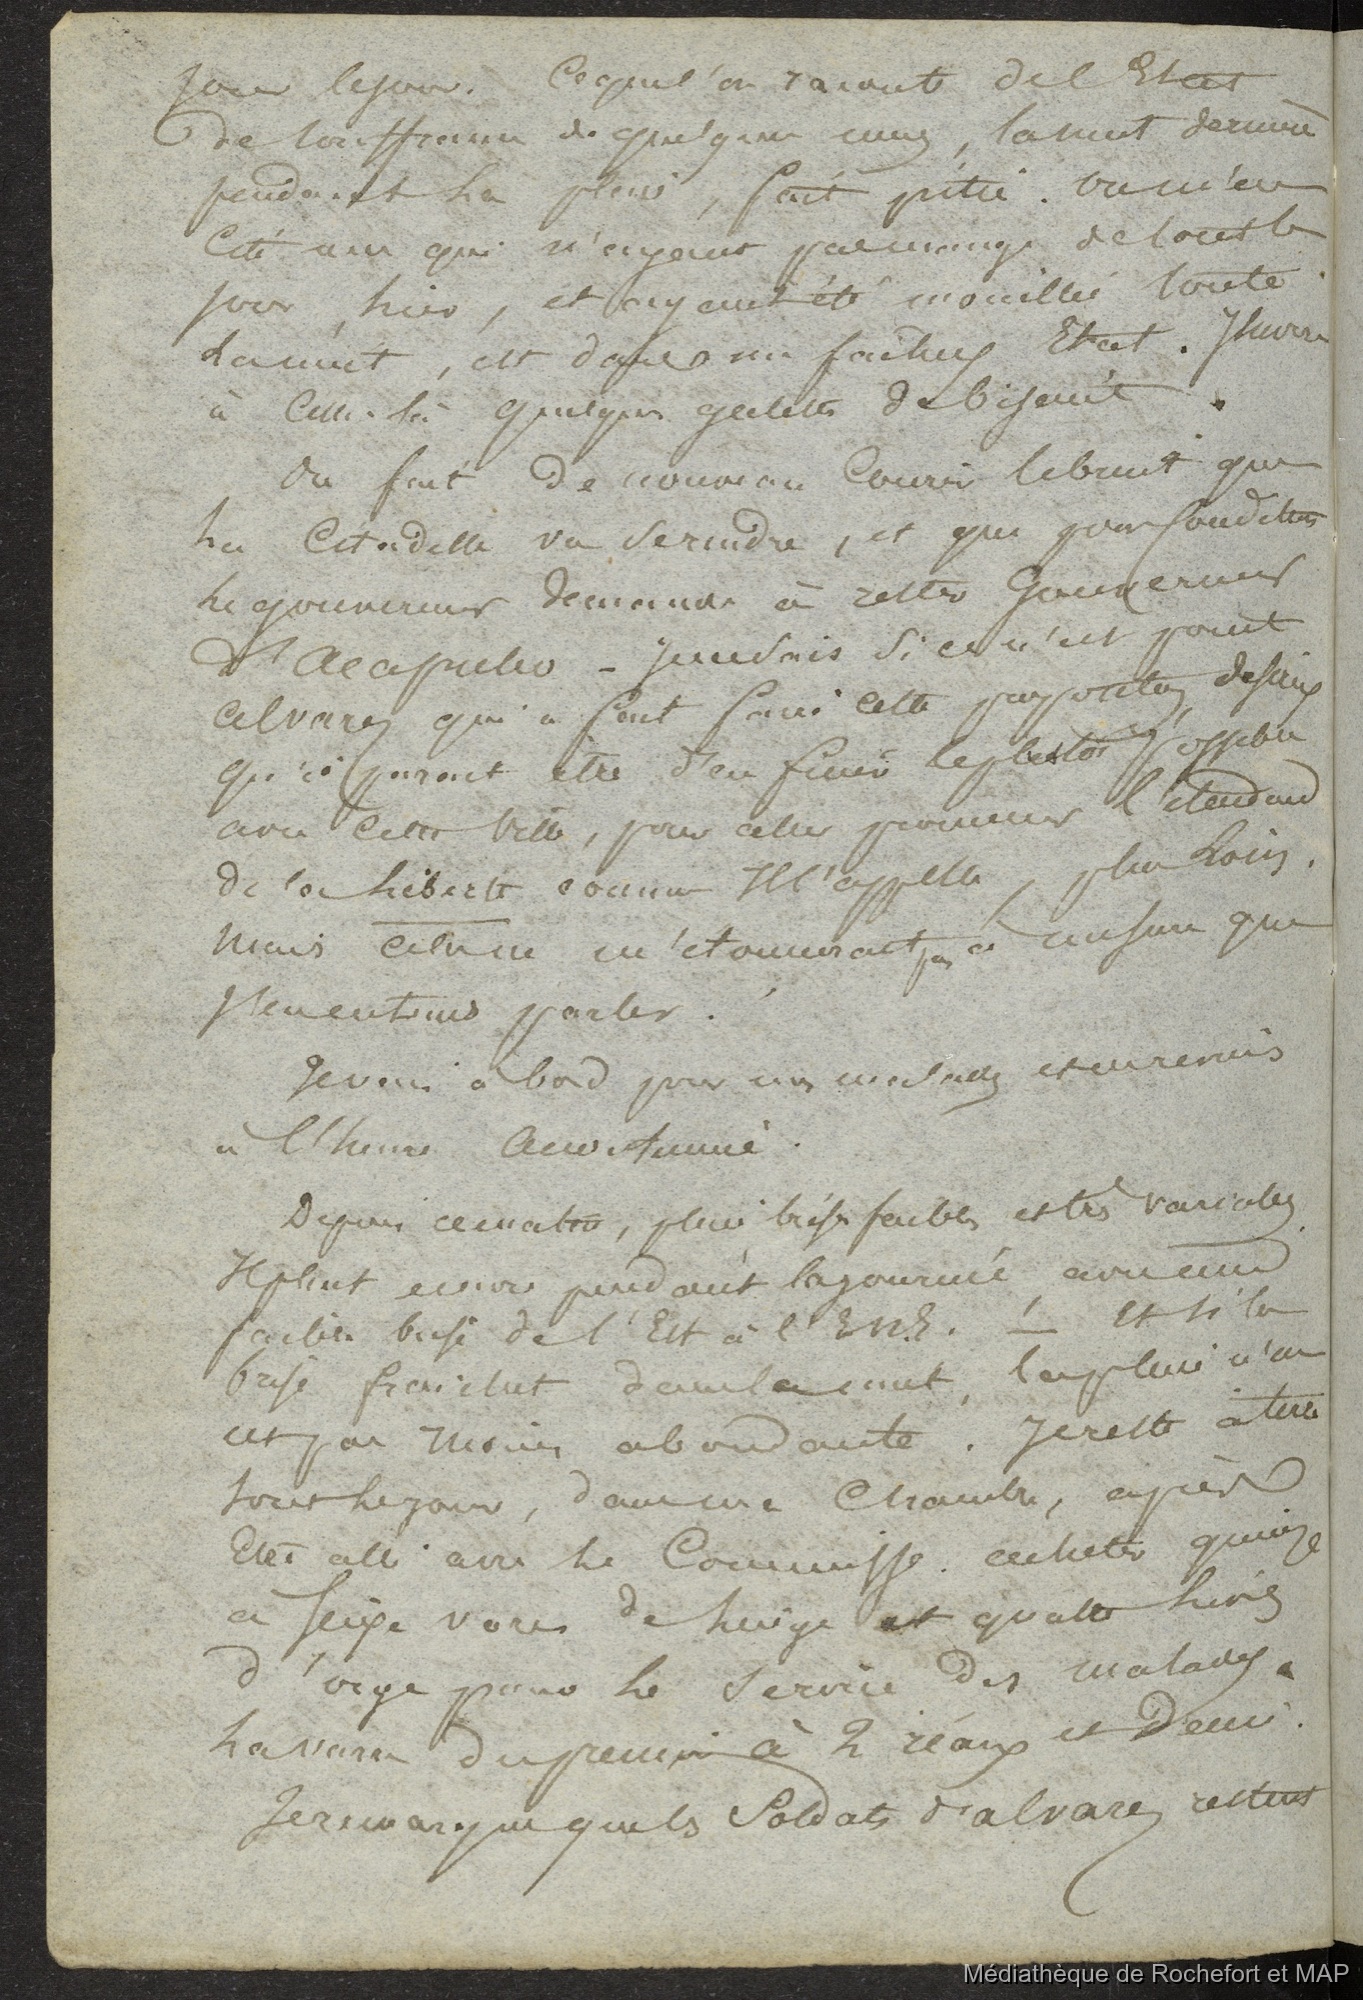 pour le jour. Ce que l'on raconte de l'Etat
de souffrance de quelques uns, la nuit dernière
pendant la pluie, fait pitié. On m'en
Cite un qui n'ayant pas mangé de tout le
jour, hier, et ayant été mouillé toute
la nuit, est dans un fâcheux Etat. J'
à celui-là quelques galettes de biscuit.
On fait de nouveau Courir le bruit que
la Citadelle va se rendre, et que pour Conditions
le gouverneur demande à rester Gouverneur
d'Acapulco - Je ne sais si ce n'est point
alvarez qui a fait faire cette proposition, désireux
qu'il parait être d'en finir le plustôt possible
avec cette ville, pour aller promener l'étendard
de la liberté comme Il l'appelle, plus Loin.
Mais cela ne m'étonnerait pas à mesure que
J'en entends parler.
Je vais à bord pour mes malades et en reviens
à l'heure accoutumée.
Depuis ce matin, pluie brises faibles et très variables
Il pleut encore pendant la journée, avec une
faible brise de l'Est à l'E.N.E. — Et si la
brise fraichit dans la nuit, la pluie n'en
est pas moins abondante. Je reste à terre
tout le jour, dans ma Chambre, après
Etre allé avec le Commiss. acheter quinze
à seize vares de linge et quatre livres
d'orge pour le service des malades.
La vare du premier à 2 réaux et Demi.
Je remarque que les Soldats d'alvarez restent
Médiathèque de Rochefort et MAP